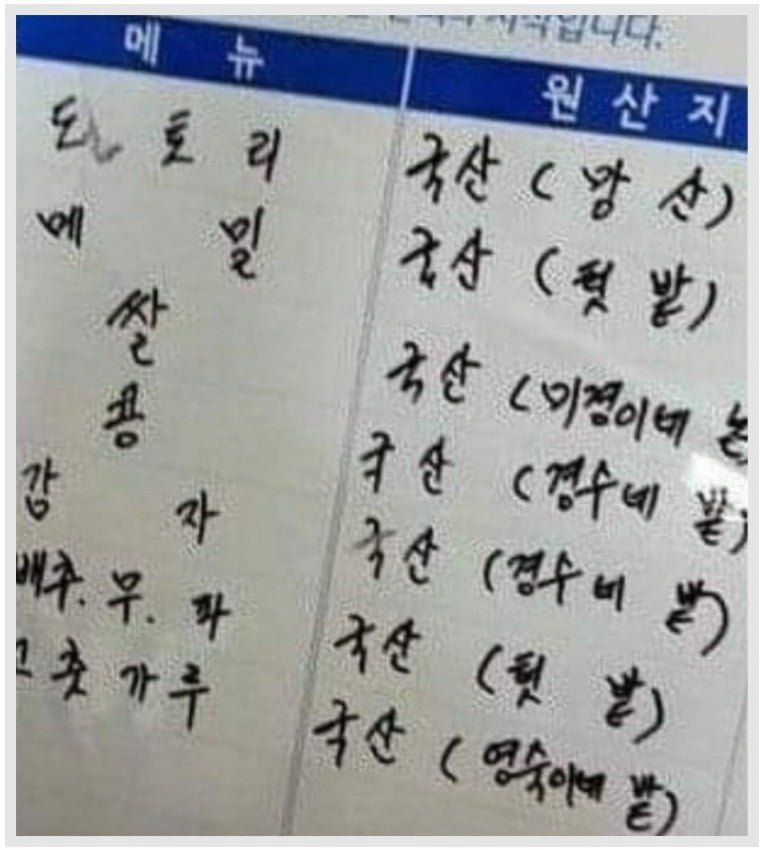 시작입니다.
메 뉴 원 산 지
도 토 리 국산 ( 망 산 )
메 밀 국산 ( 텃 밭 )
쌀 국산 ( 미경이네 논
콩 국산 ( 경수네 밭 )
감 자 국산 ( 경수네 밭 )
배추. 무. 파 국산 ( 텃 밭 )
고춧가루 국산 ( 영숙이네 밭 )